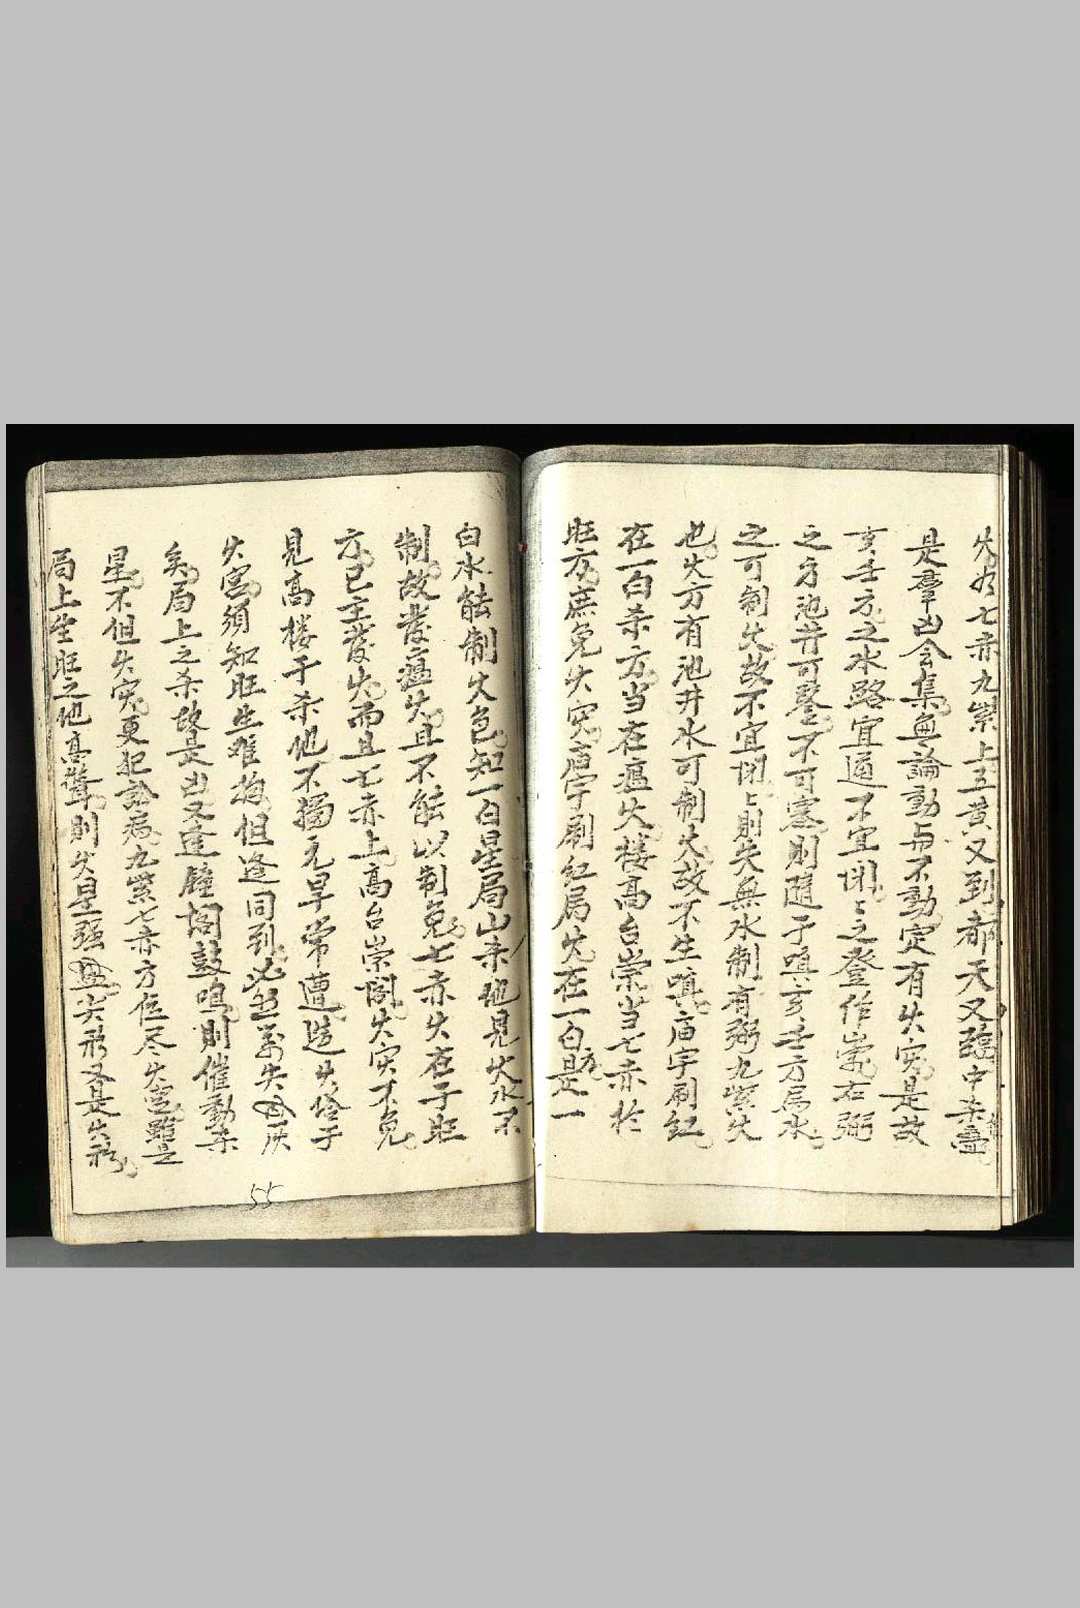 火如七赤九紫上五黄又到都天又臨中杀壘
是羣凶会集無論動与不動定有火灾是故
亥壬方之水路宜通不宜闭〻之登作祟右弼
之方池井可鑿不可塞則隨于嗔亥壬方爲水
之可制火故不宜闭〻則失無水制有弼九紫火
也火方有池井水可制火故不生嗔庙宇刷红
在一白杀方当在瘟火楼高台崇当七赤於
旺方庶免火灾庙宇刷红局火在一白方是一
白水能制火邑知一白星局山杀地見火水不
制故發瘟火且不能以制免七赤火在于旺
方已主發火而且七赤上高台崇閣火灾不免
見高楼于杀地不獨亢旱常遭造火怜于
火宫須知旺生难拘但逢同到必然万失灰
矣局上之杀故是凶又逢鐘閣鼓鳴則催動杀
星不但火灾更犯訟病九紫七赤方位尽火宫虽是
局上坐旺之地高聳則火星强尖形又是火形
55